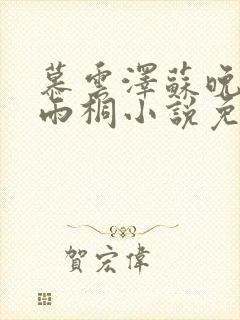 慕雲澤蘇晚
雨桐小說免
賀宏偉